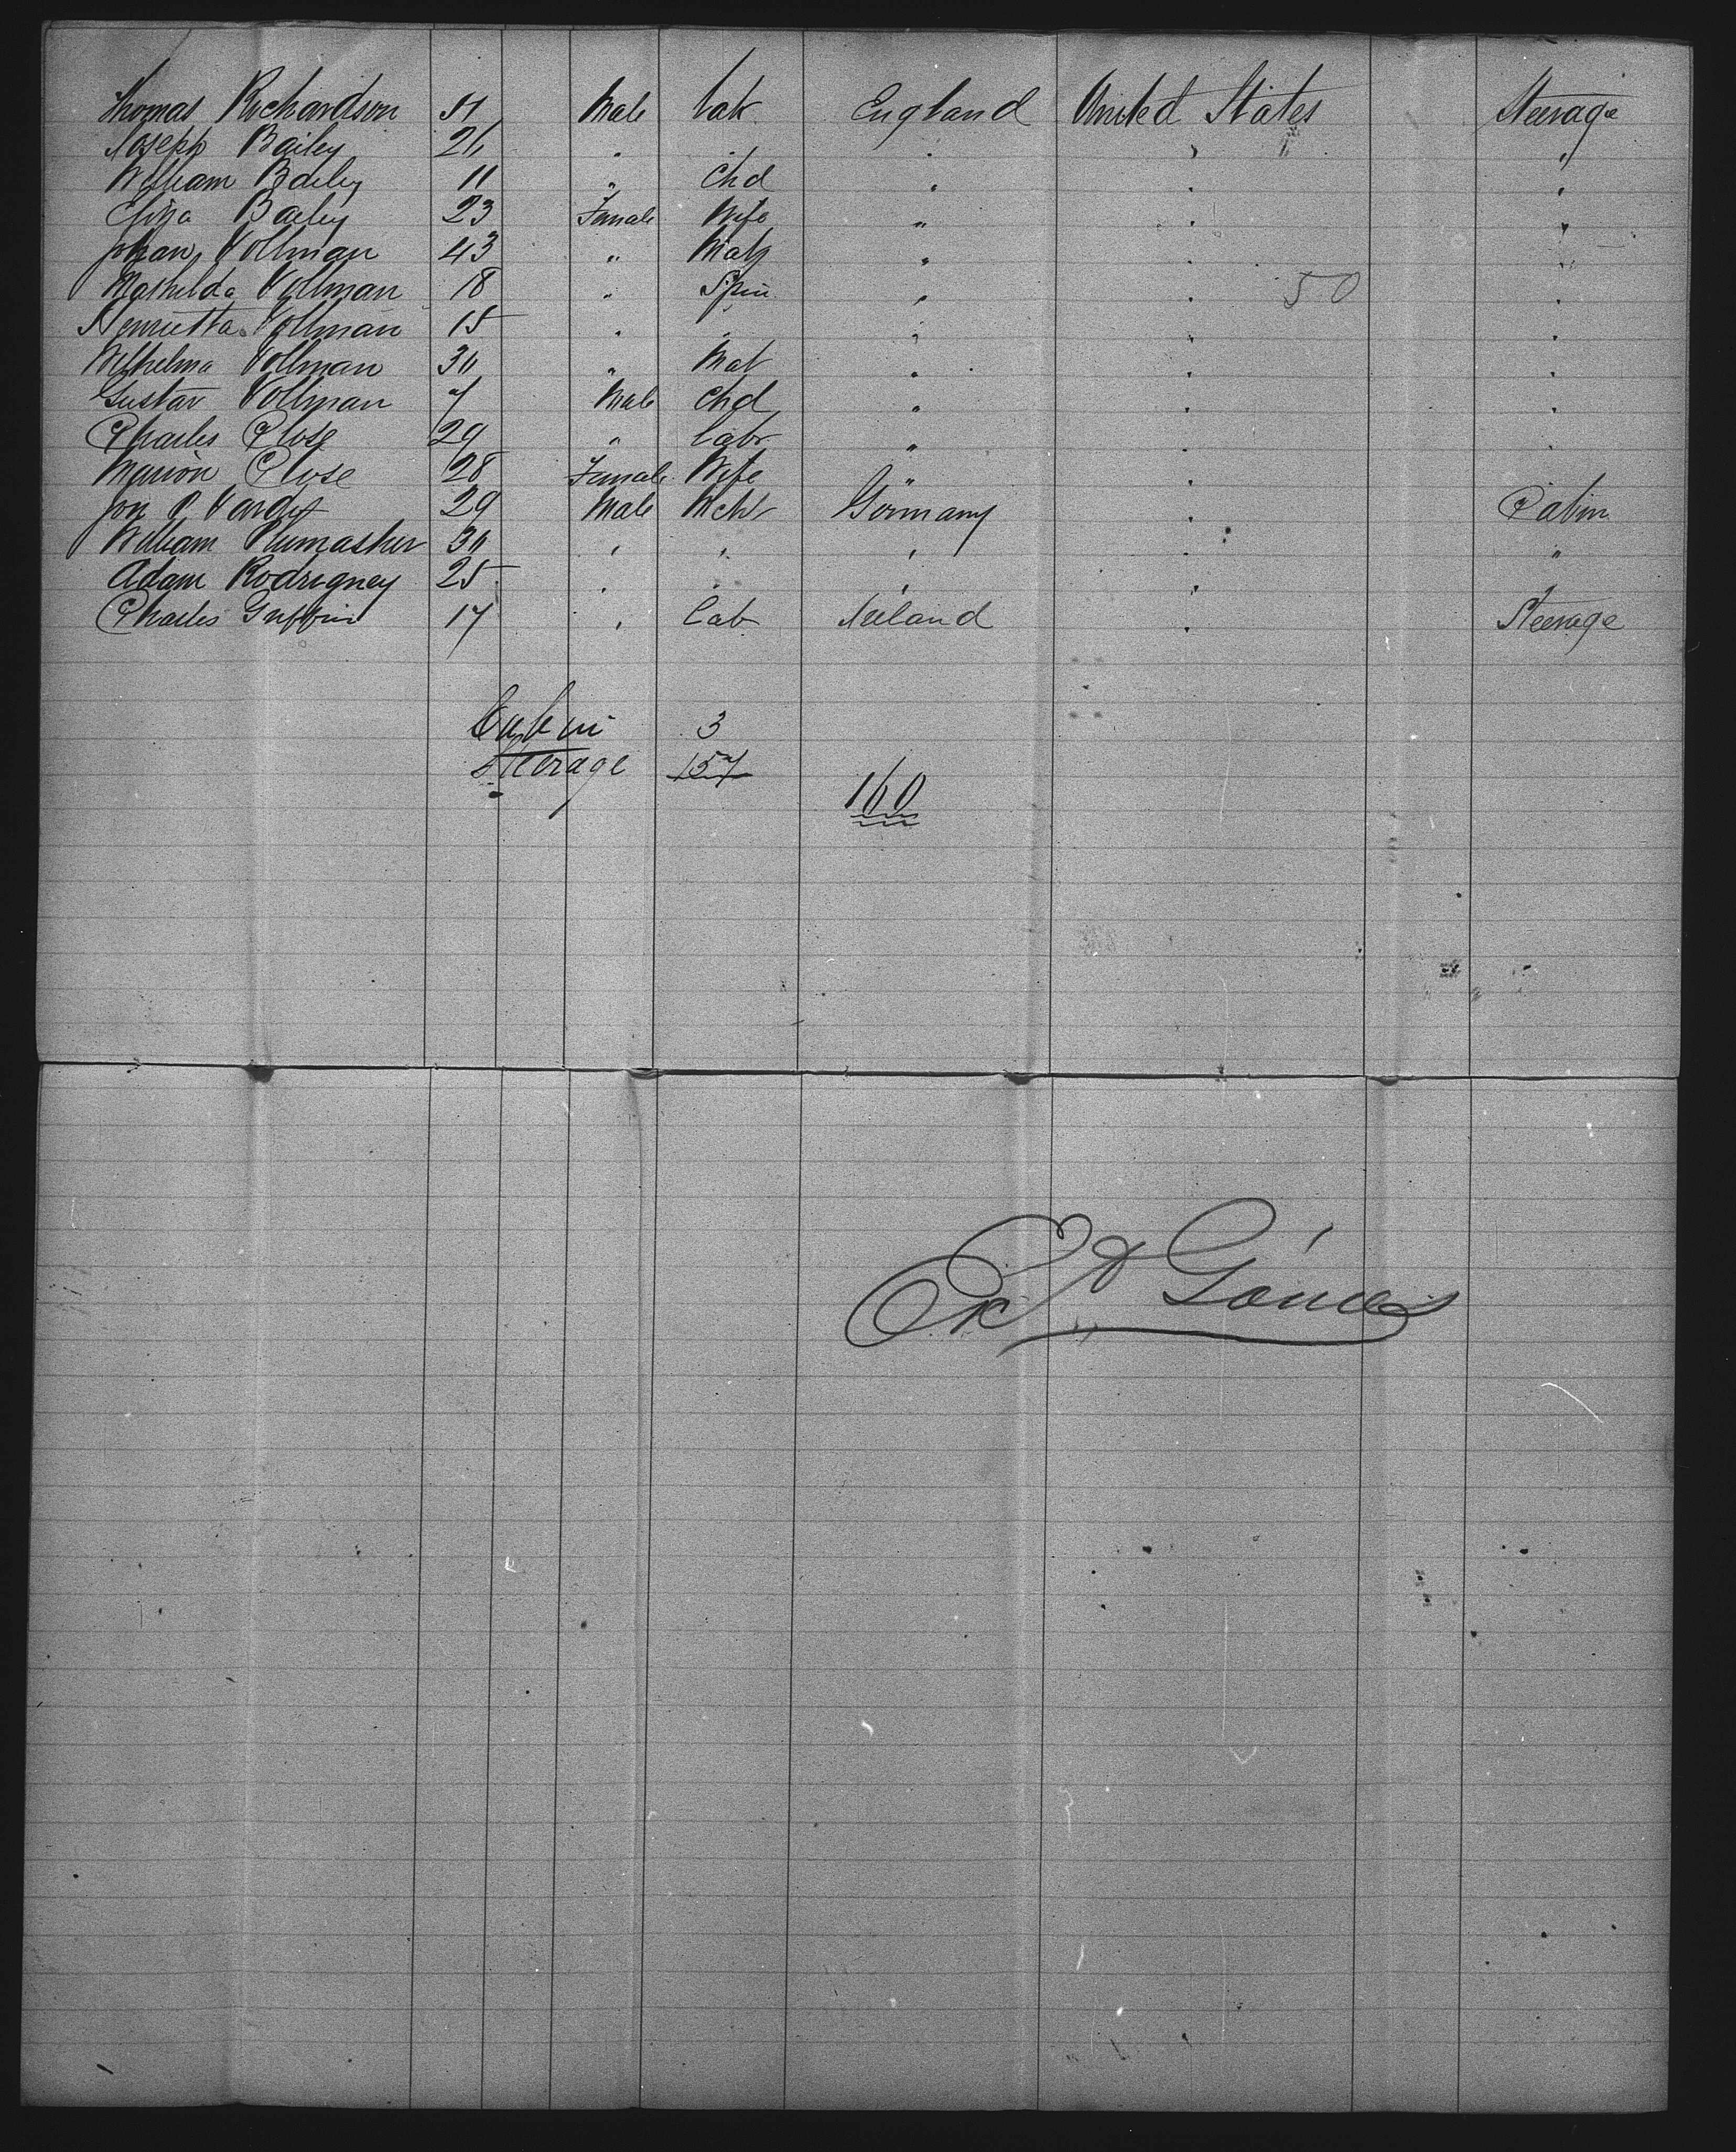 Thomas Richardson 51 Male Lab England United States Steerage
Joseph Bailey 26 " " " " "
William Bailey 11 " Chd " " "
Eliza Bailey 23 Female Wife " " "
Johan Vollman 43 " Mat " " "
Mathilda Vollman 18 " Spin " " 50 "
Henrietta Vollman 15 " " " " "
Wilhelma Vollman 30 " Mat " " "
Gustav Vollman 7 Male Chd " " "
Charles Close 29 " Labr " " "
Marion Close 28 Female Wife " "
Jon 29 Male Mcht Germany " Cabin
William 30 " " " " "
Adam Rodrigney 25 " " " "
Charles Griffin 17 " Lab Ireland " Steerage
Cabin 3
Steerage 157
160